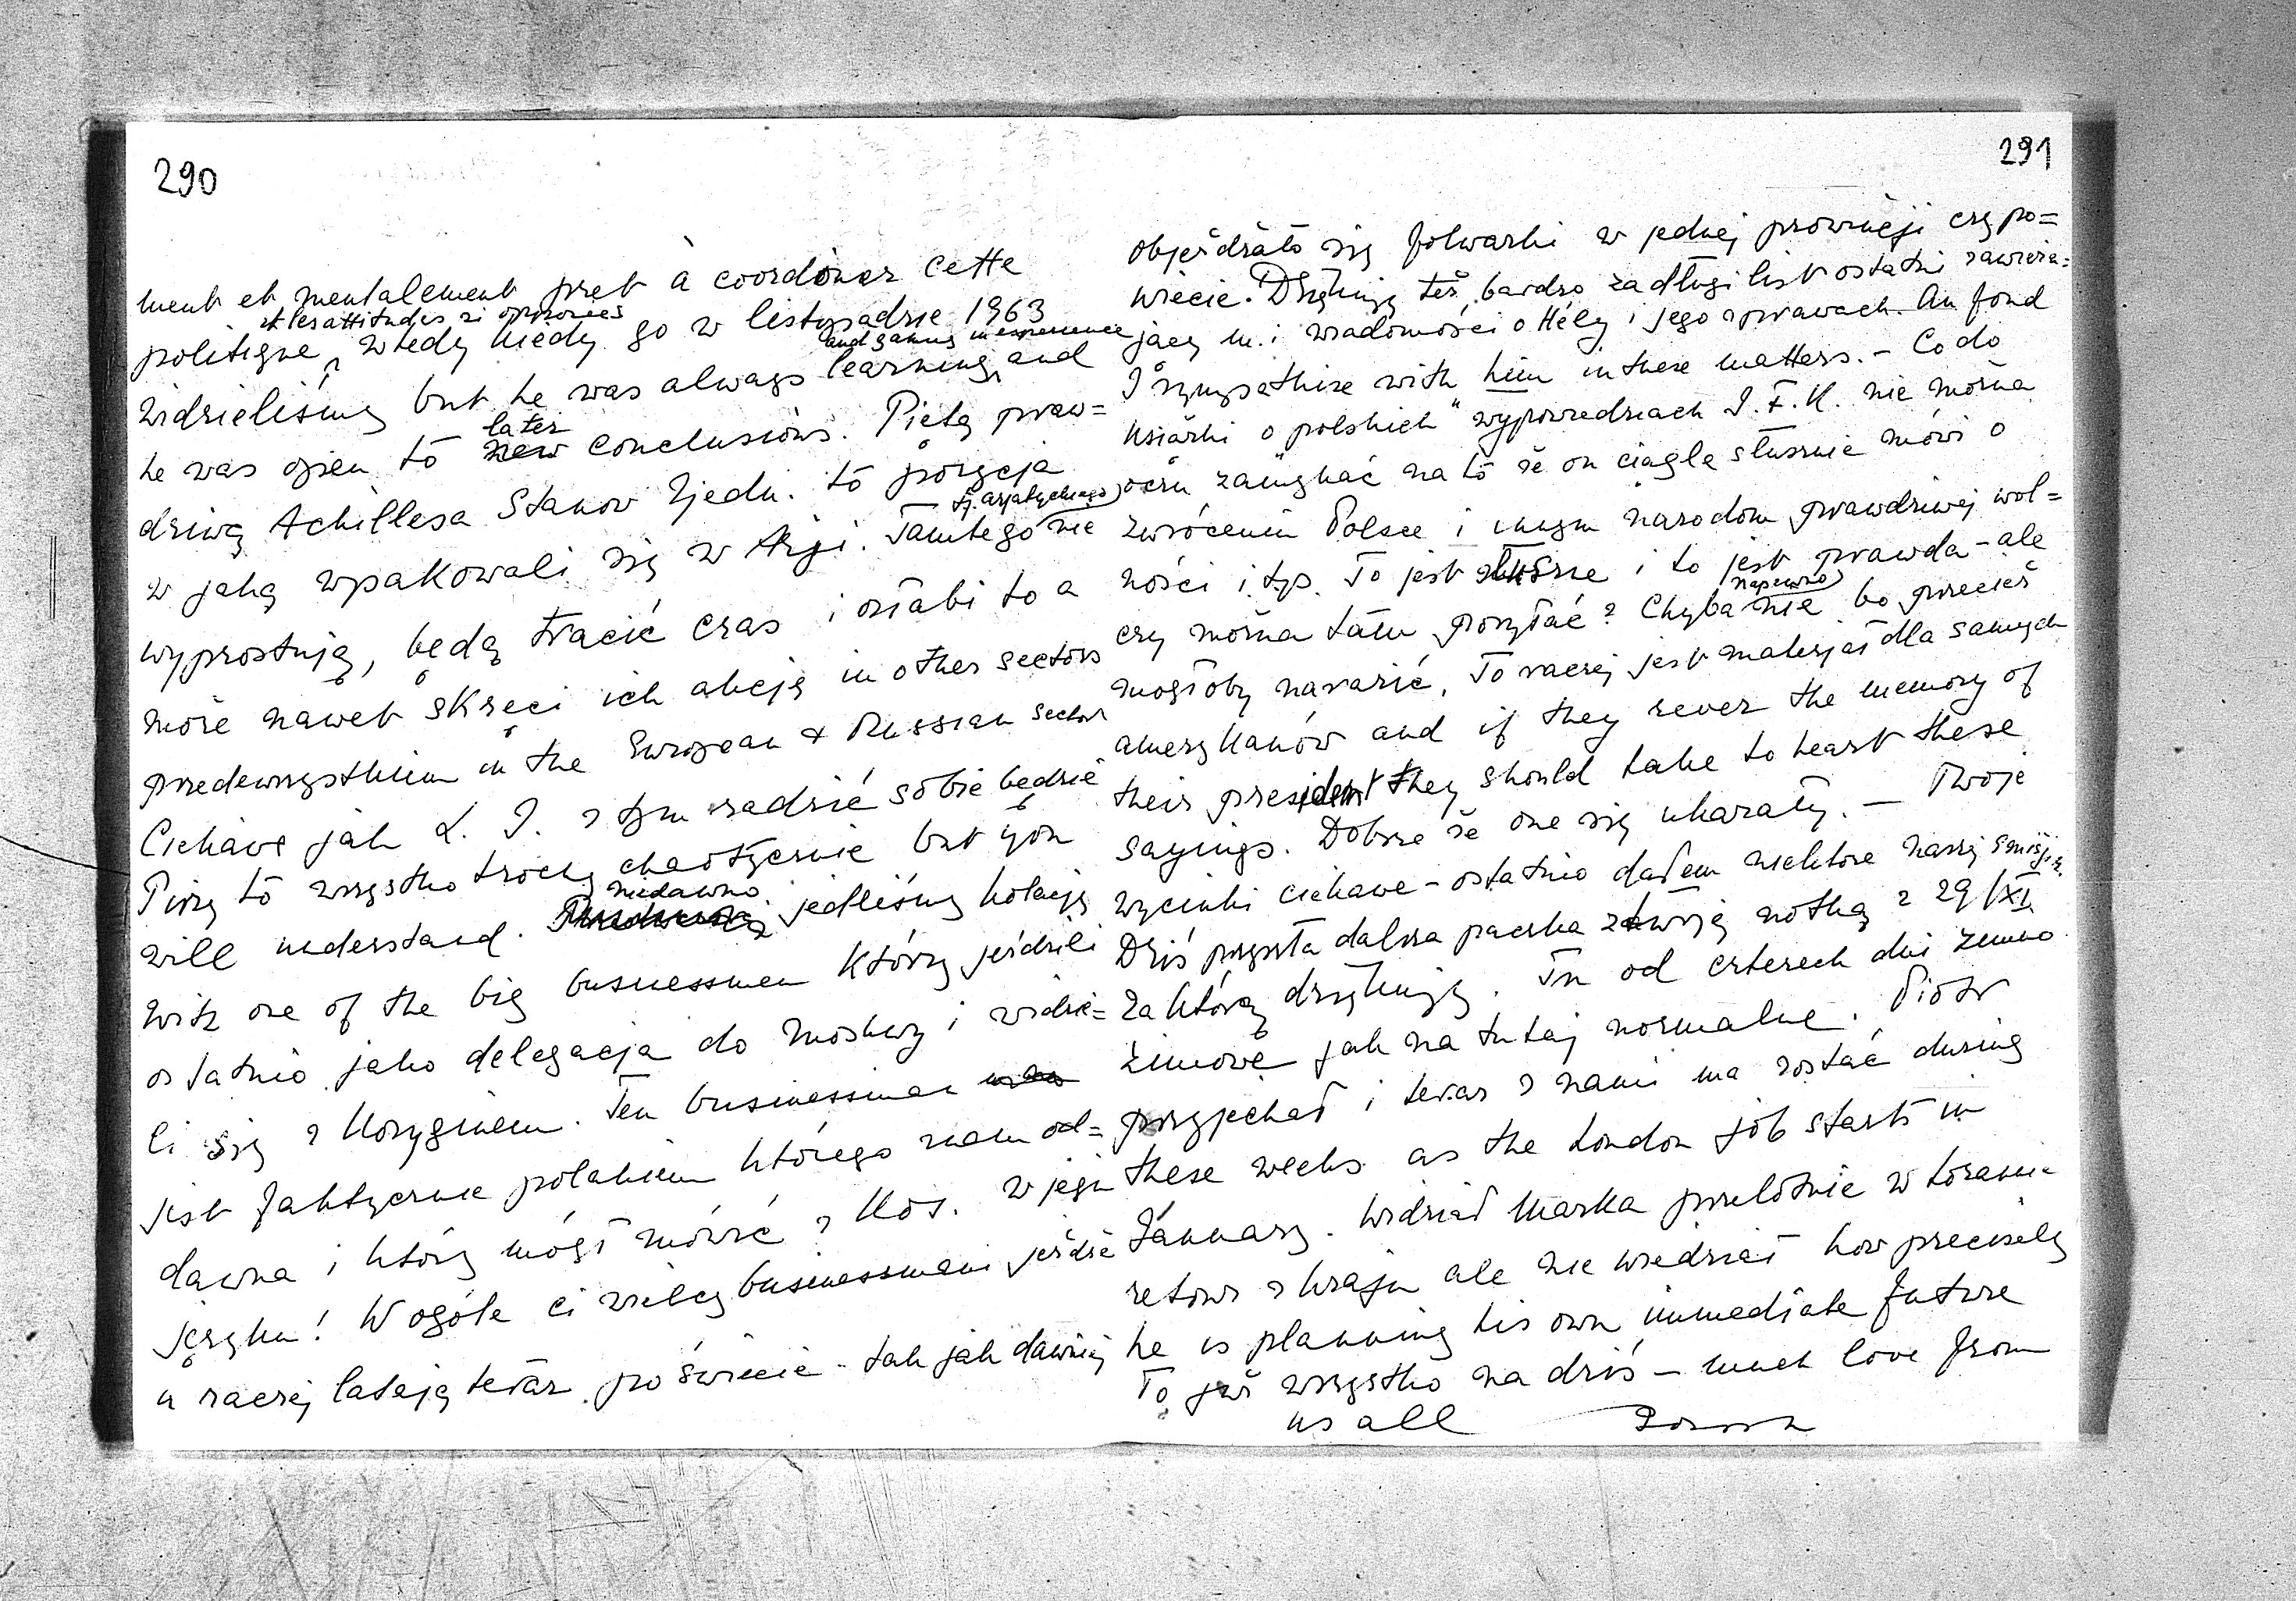 290
ment et mentalement pret à coordoner cette
et les attitudes si opposées
politique, wtedy kiedy go w listopadzie 1963
and gaining in experience
widzieliśmy but he was always learning and
later
he was open to new conclusions. Piętą praw=
dziwą Achillesa Stanow Zjedn. to pozycja
tj. azjatyckiego
w jaką wpakowali się w Azji. Tamtego nie
wyprostują, będą tracić czas i osłabi to a
może nawet skręci ich akcję in other sectors
przedewszystkiem in the European & Russian sector
Ciekawe jak L. J. z tym radzić sobie będzie
Piszę to wszystko trochę chaotycznie but you
niedawno
will understand. jedliśmy kolację
with one of the big businessmen którzy jeździli
ostatnio jako delegacja do Moskwy i widzie=
li się z Kosyginem. Ten businessman
jest faktycznie polakiem którego znam od=
dawna i który mógł mówić z Kos. w jego
języku! Wogóle ci wielcy businessmani jeżdżę
a raczej latają teraz po świecie - tak jak dawniej
291
objeżdżało się folwarki w jednej prowincji czy po=
wiecie. Dziękuję też bardzo za długi list ostatni zawiera=
jący m.i. wiadomości o Hély i jego sprawach. Au fond
I sympathise with him in these matters. - Co do
książki o "polskich" wypowiedziach J.F.K. nie można
oczu zamykać na to że on ciągle słusznie mówi o
zwróceniu Polsce i innym narodom prawdziwej wol=
ności i.t.p. To jest słuszne i to jest prawda - ale
napewno
czy można tam posyłać? Chyba nie bo przecież
mogłoby narazić. To raczej jest materjał dla samych
amerykanów and if they rever the memory of
their president they should take to heart these
sayings. Dobrze że one się ukazały. — Twoje
wycinki ciekawe - ostatnio dałem niektóre naszej
Dziś przyszła dalsza paczka z twoją notką z 29/XI
za którą dziękuję. Tu od czterech dni zimno
zimowe jak na tutaj normalne. Piotr
przyjechał i teraz z nami ma zostać during
these weeks as the London job starts in
January. Widział Marka przelotnie w Lozannie
retour z kraju ale nie wiedział how precisely
he is planning his own immediate future
To już wszystko na dziś - much love from
us all